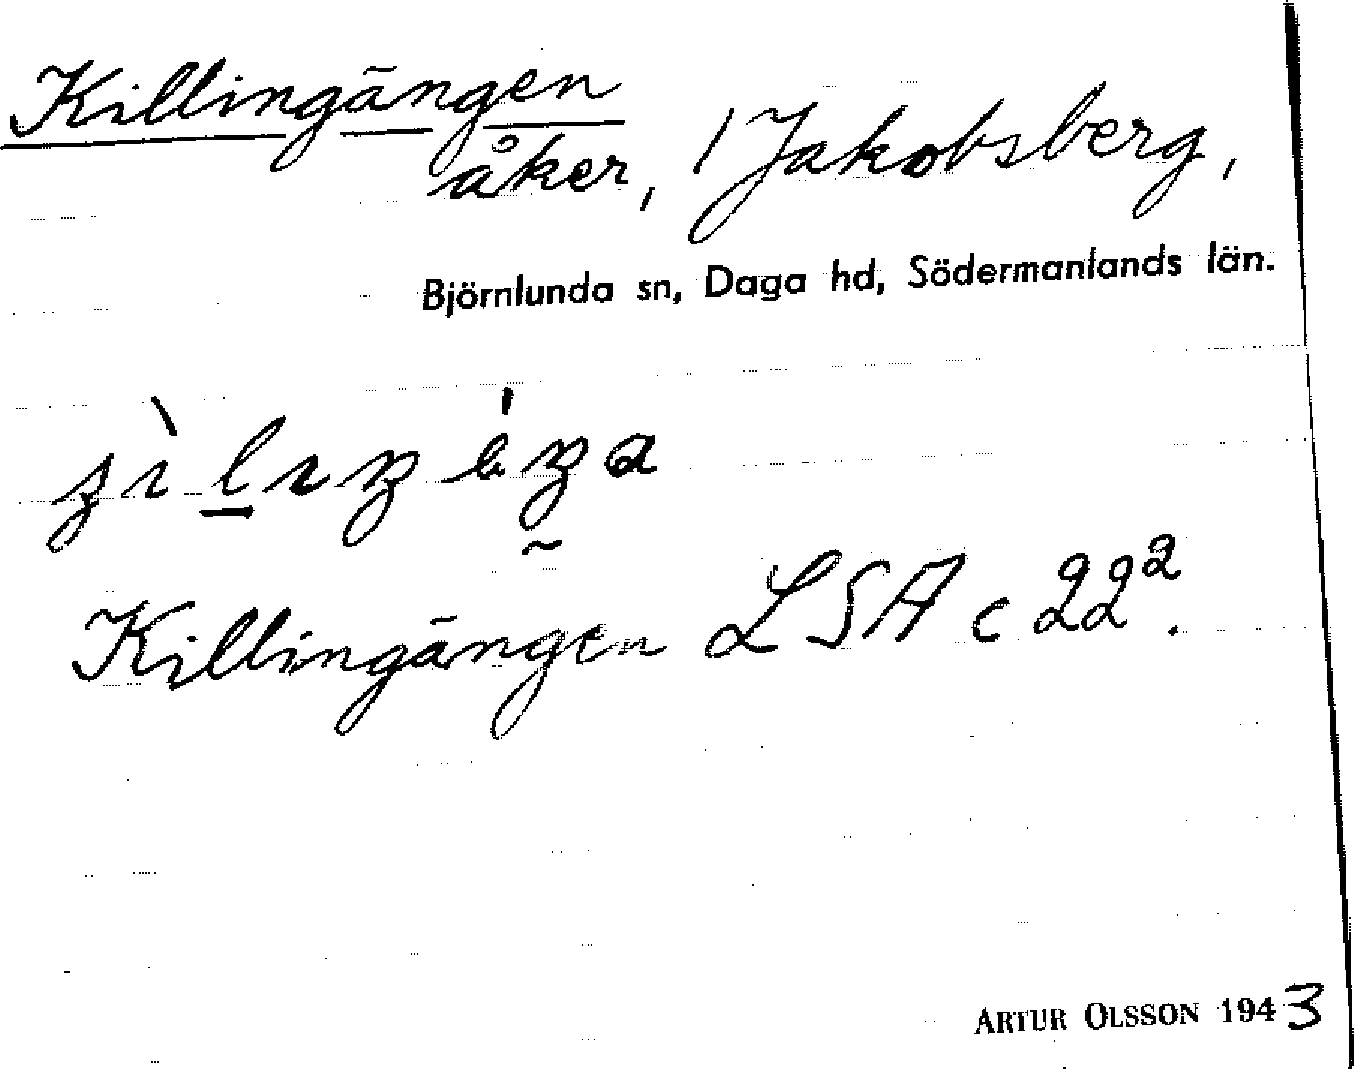 Killingängen
åker, 1 Jakobsberg,
Björnlunda sn, Daga hd, Södermanlands län.
Killingängen LSA c 22².
ARTUR OLSSON 1943